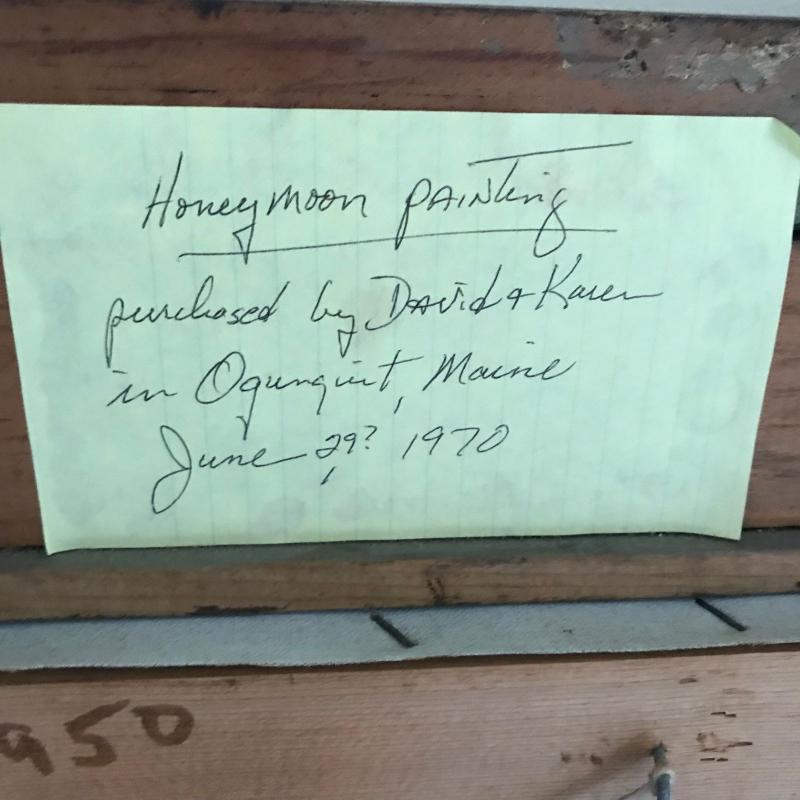 Honeymoon PAINting
purchased by DAvid & Karen
in Ogunquit, Maine
June 29? 1970
950